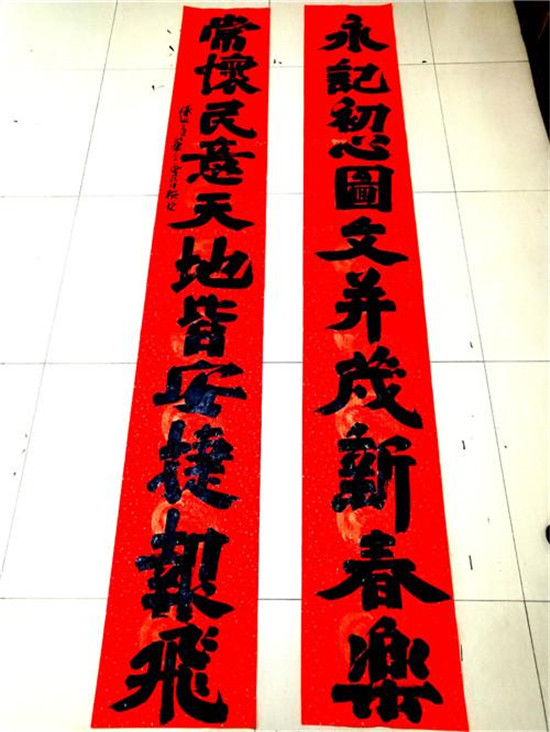 永記初心圖文并茂新春樂
常懷民意天地皆安捷報飛